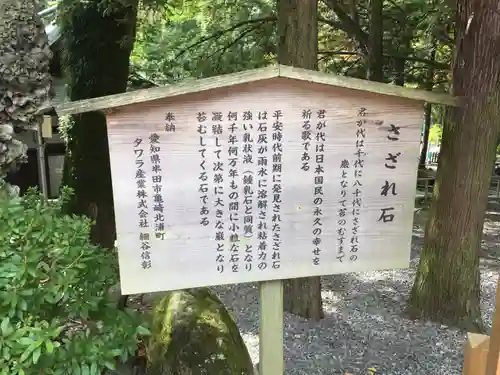 さざれ石
君が代は千代に八千代にさざれ石の
巌となりて苔のむすまで
君が代は日本国民の永久の幸せを
祈る歌である
平安時代前期に発見されたさざれ石
は石灰が雨水に溶解され粘着力の
強い乳状液(鍾乳石と同質)となり
何千年何万年もの間に小粒な石を
集結して次第に大きな巌となり
苔むしてくる石である
奉納
愛知県半田市亀崎北浦町
タワラ産業株式会社 細谷信彰